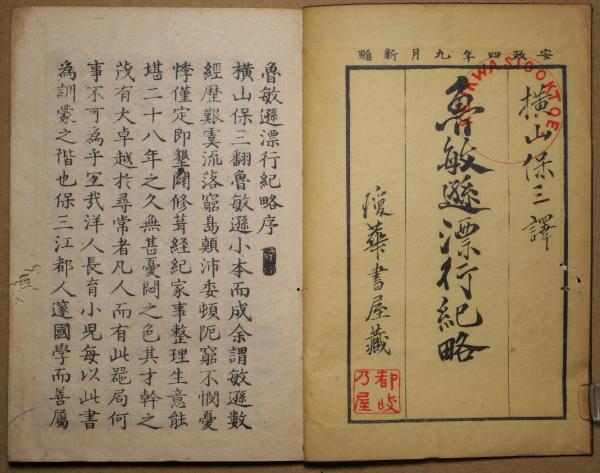 安政四年九月新雕
橫山保三譯
魯敏遜漂行紀略
瓊華書屋藏
都岐
乃屋
魯敏遜漂行紀略序
橫山保三翻魯敏遜小本而成余謂敏遜數
經歷艱寠流落窮島顛沛委頓阨窮不憫憂
悸僅定即墾闢修葺經紀家事整理生意能
堪二十八年之久無甚憂悶之色其才幹之
茂有大卓越於尋常者凡人而有此器局何
事不可為乎宜哉洋人長育小児每以此書
為訓蒙之階也保三江都人邃國學而善屬